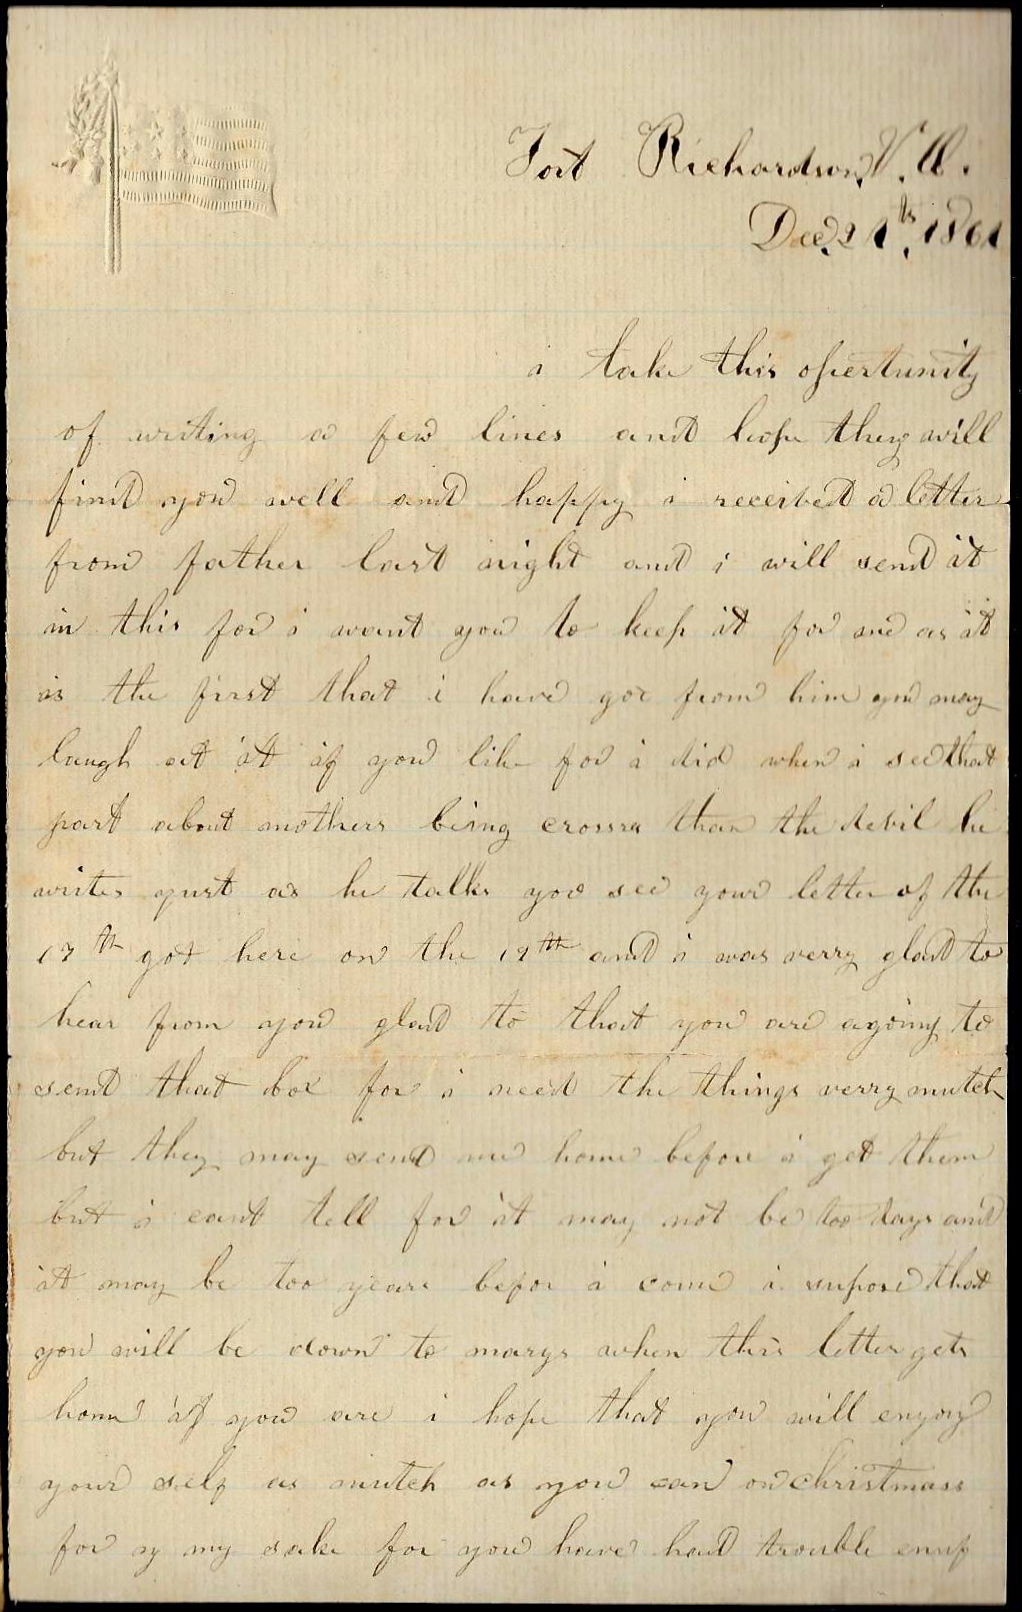 Fort Richardson, V.A.
Dec, 21th, 1861
i take this opertunity
of writing a few lines and hope they will
find you well and happy i received a letter
from father last night and i will send it
in this for i want you to keep it for me as it
is the first that i have got from him you may
laugh at it if you like for i did when i see that
part about mothers being crossra than the devil he
writes yust as he talks you see your letter of the
17th got here on the 19th and i was verry glad to
hear from you glad to that you are agoing to
send that box for i need the things verry mutch
but they may send me home before i get them
but i cant tell for it may not be too days and
it may be too years befor i come i supose that
you will be down to marys when this letter gets
home if you are i hope that you will enyoy
your self as mutch as you can on christmass
for y my sake for you have had trouble enuf